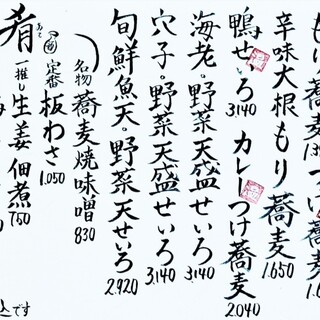 もり蕎麦
つけ蕎麦
辛味大根もり蕎麦 1.650
鴨せいろ 3.140
カレーつけ蕎麦 2.040
海老。野菜天盛せいろ 3.140
穴子。野菜天盛せいろ 3.140
旬鮮魚天。野菜天せいろ 2.920
名物 蕎麦焼味噌 830
定番 板わさ 1.050
一推し 生姜佃煮 750
肴
込です